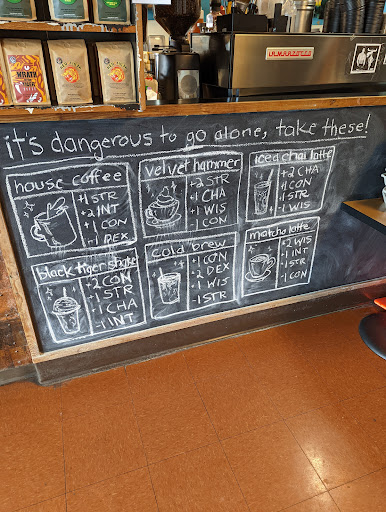 WRATH
LA MARZOCCO
it's dangerous to go alone, take these!
house coffee
+1 STR
+2 INT
+1 CON
-1 DEX
velvet hammer
+2 STR
+1 CHA
+1 WIS
-1 CON
iced chai latte
+2 CHA
+1 CON
+1 STR
-1 WIS
black tiger shake
+2 CON
+1 STR
+1 CHA
-1 INT
cold brew
+1 CON
+2 DEX
+1 WIS
-1 STR
matcha latte
+2 WIS
+1 INT
+1 STR
-1 CON